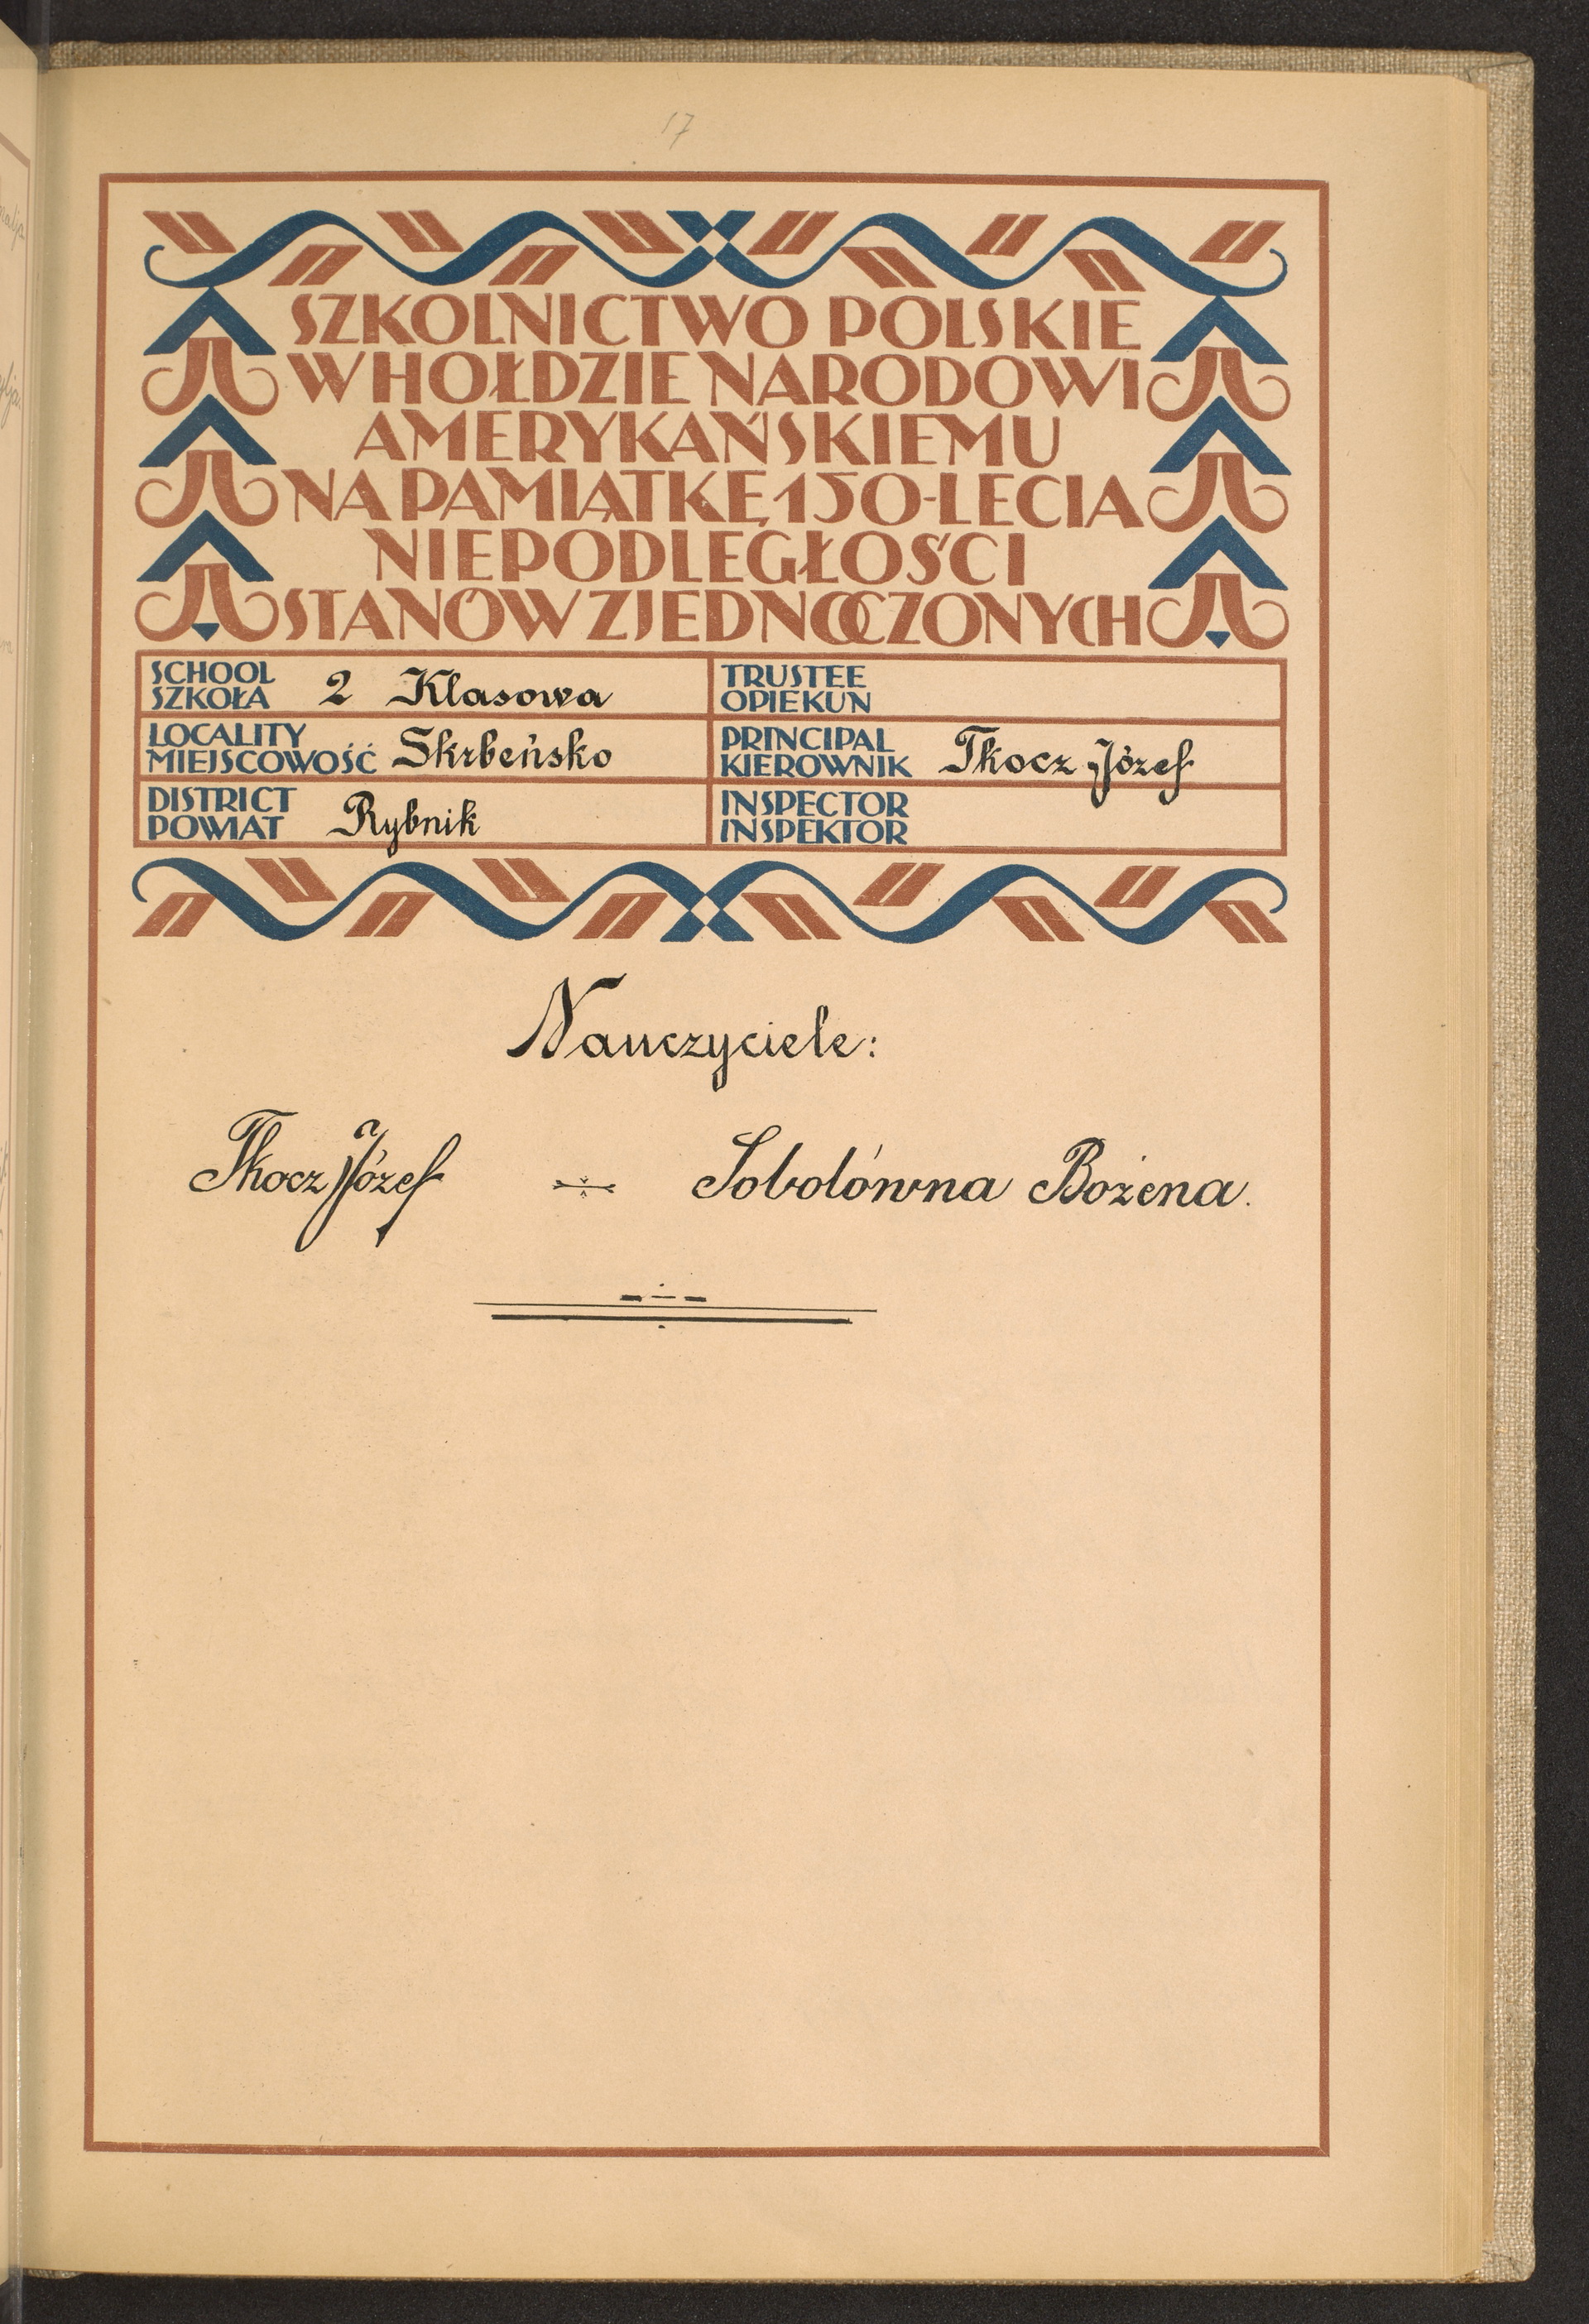 17
SZKOLNICTWO POLSKIE
W HOŁDZIE NARODOWI
AMERYKAŃSKIEMU
NA PAMIĄTKĘ 150-LECIA
NIEPODLEGŁOŚCI
STANÓW ZJEDNOCZONYCH
SCHOOL
SZKOŁA 2 Klasowa
TRUSTEE
OPIEKUN
LOCALITY
MIEJSCOWOŚĆ Skrbeńsko
PRINCIPAL
KIEROWNIK Tkocz Józef
DISTRICT
POWIAT Rybnik
INSPECTOR
INSPEKTOR
Nauczyciele:
Tkocz Józef Sobolówna Bożena.